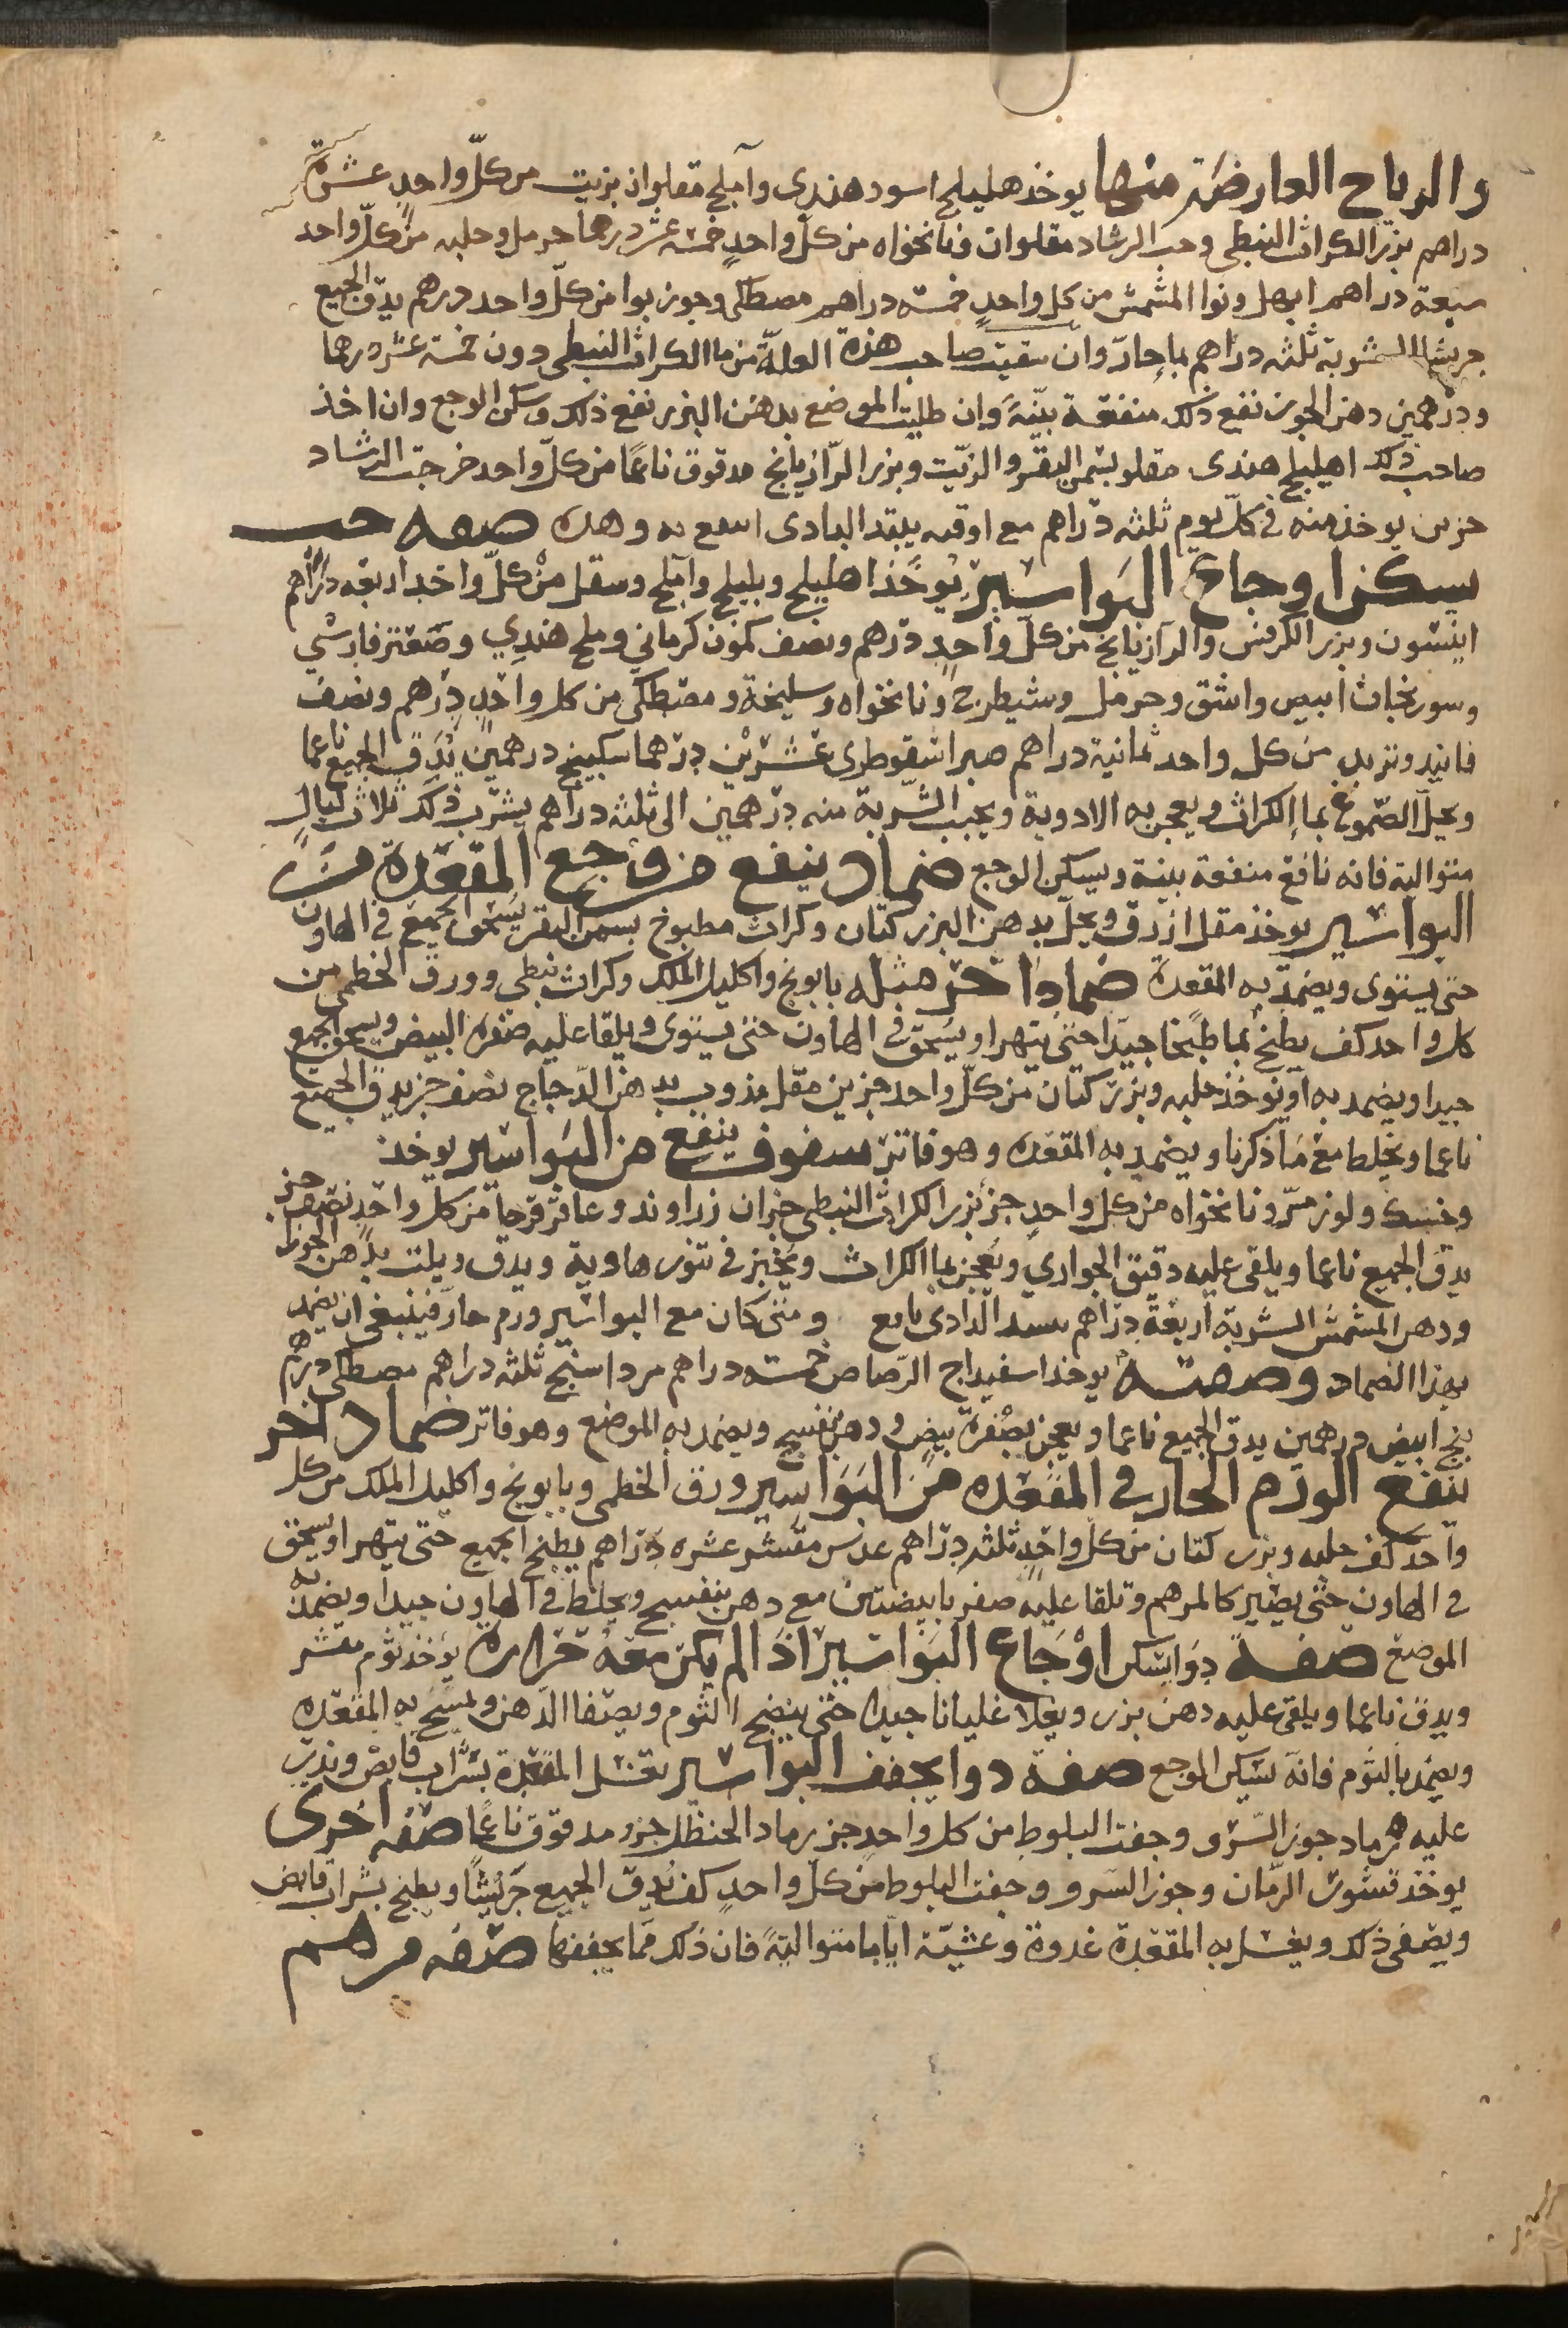 والرياح العارضة منها يوخذ هليلج اسود هندي وآملج مقلوان بزيت من كلّ واحدٍ عشرة
دراهم بزر الكراث النبطي وحب الرشاد مقلوان ونانخواه من كلّ واحدٍ خمسة عشر درهما حرمل وحلبه من كلّ واحد
سبعة دراهم ابهل ونوا المشمش من كل واحدٍ خمسة دراهم مصطكى وجوزبوا من كلّ واحد درهم يدقّ الجميع
جريشا الشربة ثلثه دراهم بماءٍ حارّ وان سقيت صاحب هذه العلّة من ما الكراث النبطي دون خمسة عشر درهما
ودرهمين دهن الجوز نفع ذلك منفعة بيّنة وان طليت الموضع بدهن البزر نفع ذلك وسكن الوجع وان اخذ
صاحب ذلك اهليلج هندى مقلو بسمن البقر والزيت وبزر الرّازيانج مدقوق ناعما من كلّ واحد حب الرشاد
جزين يوخذ منه في كلّ يوم ثلثه دراهم مع اوقيه نبيد الدادى انتفع به وهده صفه حب
يسكن اوجاع البواسير يوخذ اهليلج وبليلج وآملج ومقل من كلّ واحد اربعه دراهم
انيسون وبزر الكرفس والرازيانج من كلّ واحدٍ درهم ونصف كمون كرماني وملح هندي وصعتر فارسي
وسورنجان ابيض واشق وحرمل وشيطرج ونانخواه وسليخة ومصطكى من كل واحدٍ درهم ونصف
فانيد وتربد من كل واحد ثمانية دراهم صبر اسقوطرى عشرين درهما سكبينج درهمين يدق الجميع ناعما
ويحلّ الصّموغ بما الكراث ويعجن به الادوية ويحبب الشربة منه درهمين الى ثلثه دراهم يشرب ذلك ثلاث ليالٍ
متوالية فانه نافع منفعة بينة ويسكن الوجع ضماد ينفع من وجع المقعدة من
البواسير يوخذ مقل ازرق ويحلّ بدهن البزر كتان وكراث مطبوخ بسمن البقر يسحق الجميع في الهاون
حتى يستوى ويضمد به المقعدة ضماد اخر مثله بابونج واكليل الملك وكراث نبطي وورق الخطمي من
كل واحد كف يطبخ بما طبخا جيدا حتى يتهرا ويسحق في الهاون حتى يستوى ويلقا عليه صفرة البيض ويسحق الجميع
جيدا ويضمد به او يوخذ حلبه وبزر كتان من كلّ واحد جزين مقل مذوب بدهن الدجاج نصف جز يدق الجميع
ناعما ويخلط مع ما ذكرنا ويضمد به المقعده وهو فاتر سفوف ينفع من البواسير يوخذ
وخسك ولوز مرّ ونانخواه من كل واحدٍ جز بزر الكراث النبطي جزان زراوند وعاقرقرحا من كل واحدٍ نصف جز
يدق الجميع ناعما ويلقى عليه دقيق الحواري ويعجن بما الكراث ويخبز في تنور هاوية ويدق ويلت بدهن الجوز
ودهن المشمش الشربة اربعة دراهم بنبيد الدادى نافع ومتى كان مع البواسير ورم حار فينبغي ان يضمد
بهذا الضماد وصفته يوخذ اسفيداج الرّصاص خمسة دراهم مرداسنج ثلثه دراهم مصطكى درهم
بنج ابيض درهمين يدق الجميع ناعما ويعجن بصفرة بيض ودهن بنفسج ويضمد به الموضع وهو فاتر ضماد اخر
ينفع الورم الحار في المقعده من البواسير ورق الخطمي وبابونج واكليل الملك من كل
واحد كف حلبه وبزر كتان من كل واحدٍ ثلثه دراهم عدس مقشر عشره دراهم يطبخ الجميع حتى يتهرا ويسحق
في الهاون حتى يصير كالمرهم وتلقا عليه صفره بابيضتين مع دهن بنفسج ويخلط في الهاون جيدا ويضمد به
الموضع صفة دوا يسكن اوجاع البواسير اذا لم يكن معه حرارة يوخذ ثوم مقشر
ويدق ناعما ويلقى عليه دهن بزر ويغلا غليانا جيدا حتى ينضج الثوم ويصفا الدهن ويمسح به المقعده
ويضمد بالثوم فانه يسكن الوجع صفة دوا يجفف البواسير تغسل المقعدة بشراب قابض ويذر
عليه رماد جوز السّرو وجفت البلوط من كل واحدٍ جز رماد الحنظل جزو مدقوق ناعما صفه اخرى
يوخذ قشور الرّمان وجوز السرو وجفت البلوط من كلّ واحدٍ كف يدقّ الجميع جريشا ويطبخ بشراب قابض
ويصفى ذلك ويغسل به المقعدة غدوة وعشيّة ايّاما متوالية فان ذلك ممّا يجففها صفه مرهم